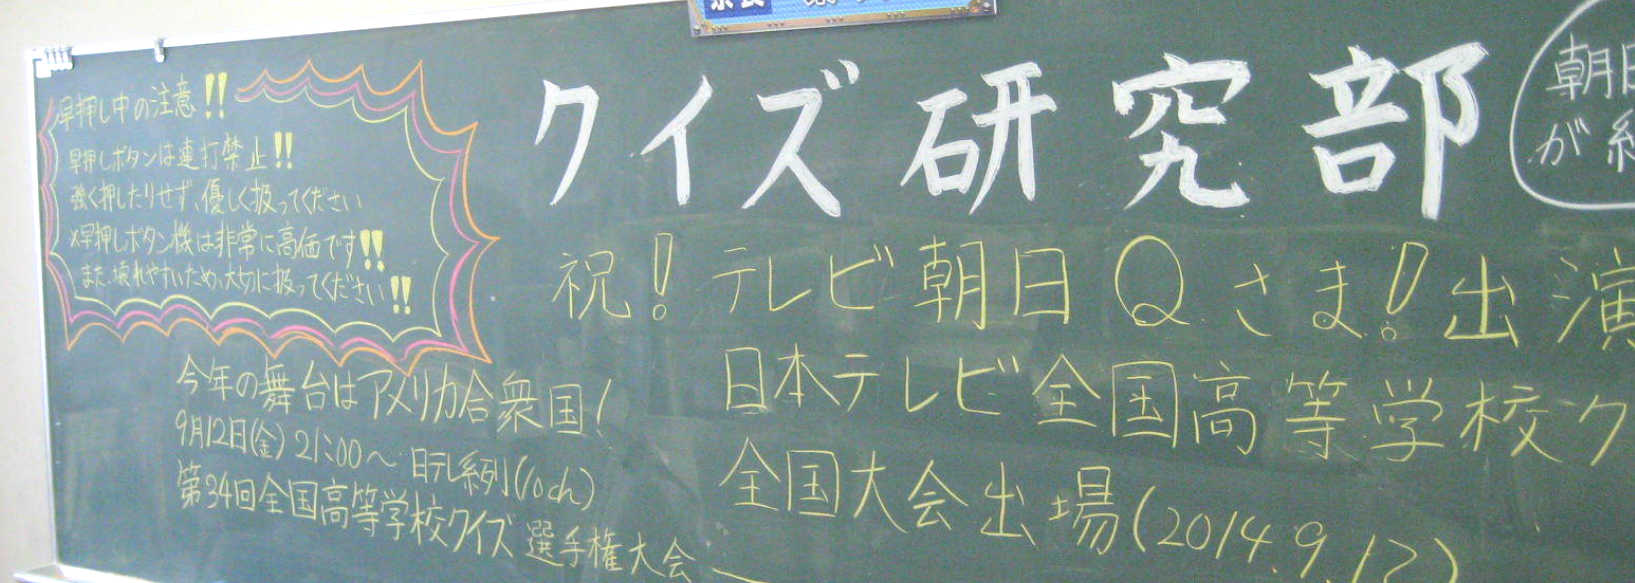 早押し中の注意!!
早押しボタンは連打禁止!!
強く押したりせず、優しく扱ってください
※早押しボタン機は非常に高価です!!
また、壊れやすいため、大切に扱ってください!!
クイズ研究部
朝日
が
祝!テレビ朝日Qさま!出演
日本テレビ全国高等学校ク
全国大会出場(2014.9.12)
今年の舞台はアメリカ合衆国!
9月12日(金)21:00〜日テレ系列(10ch)
第34回全国高等学校クイズ選手権大会